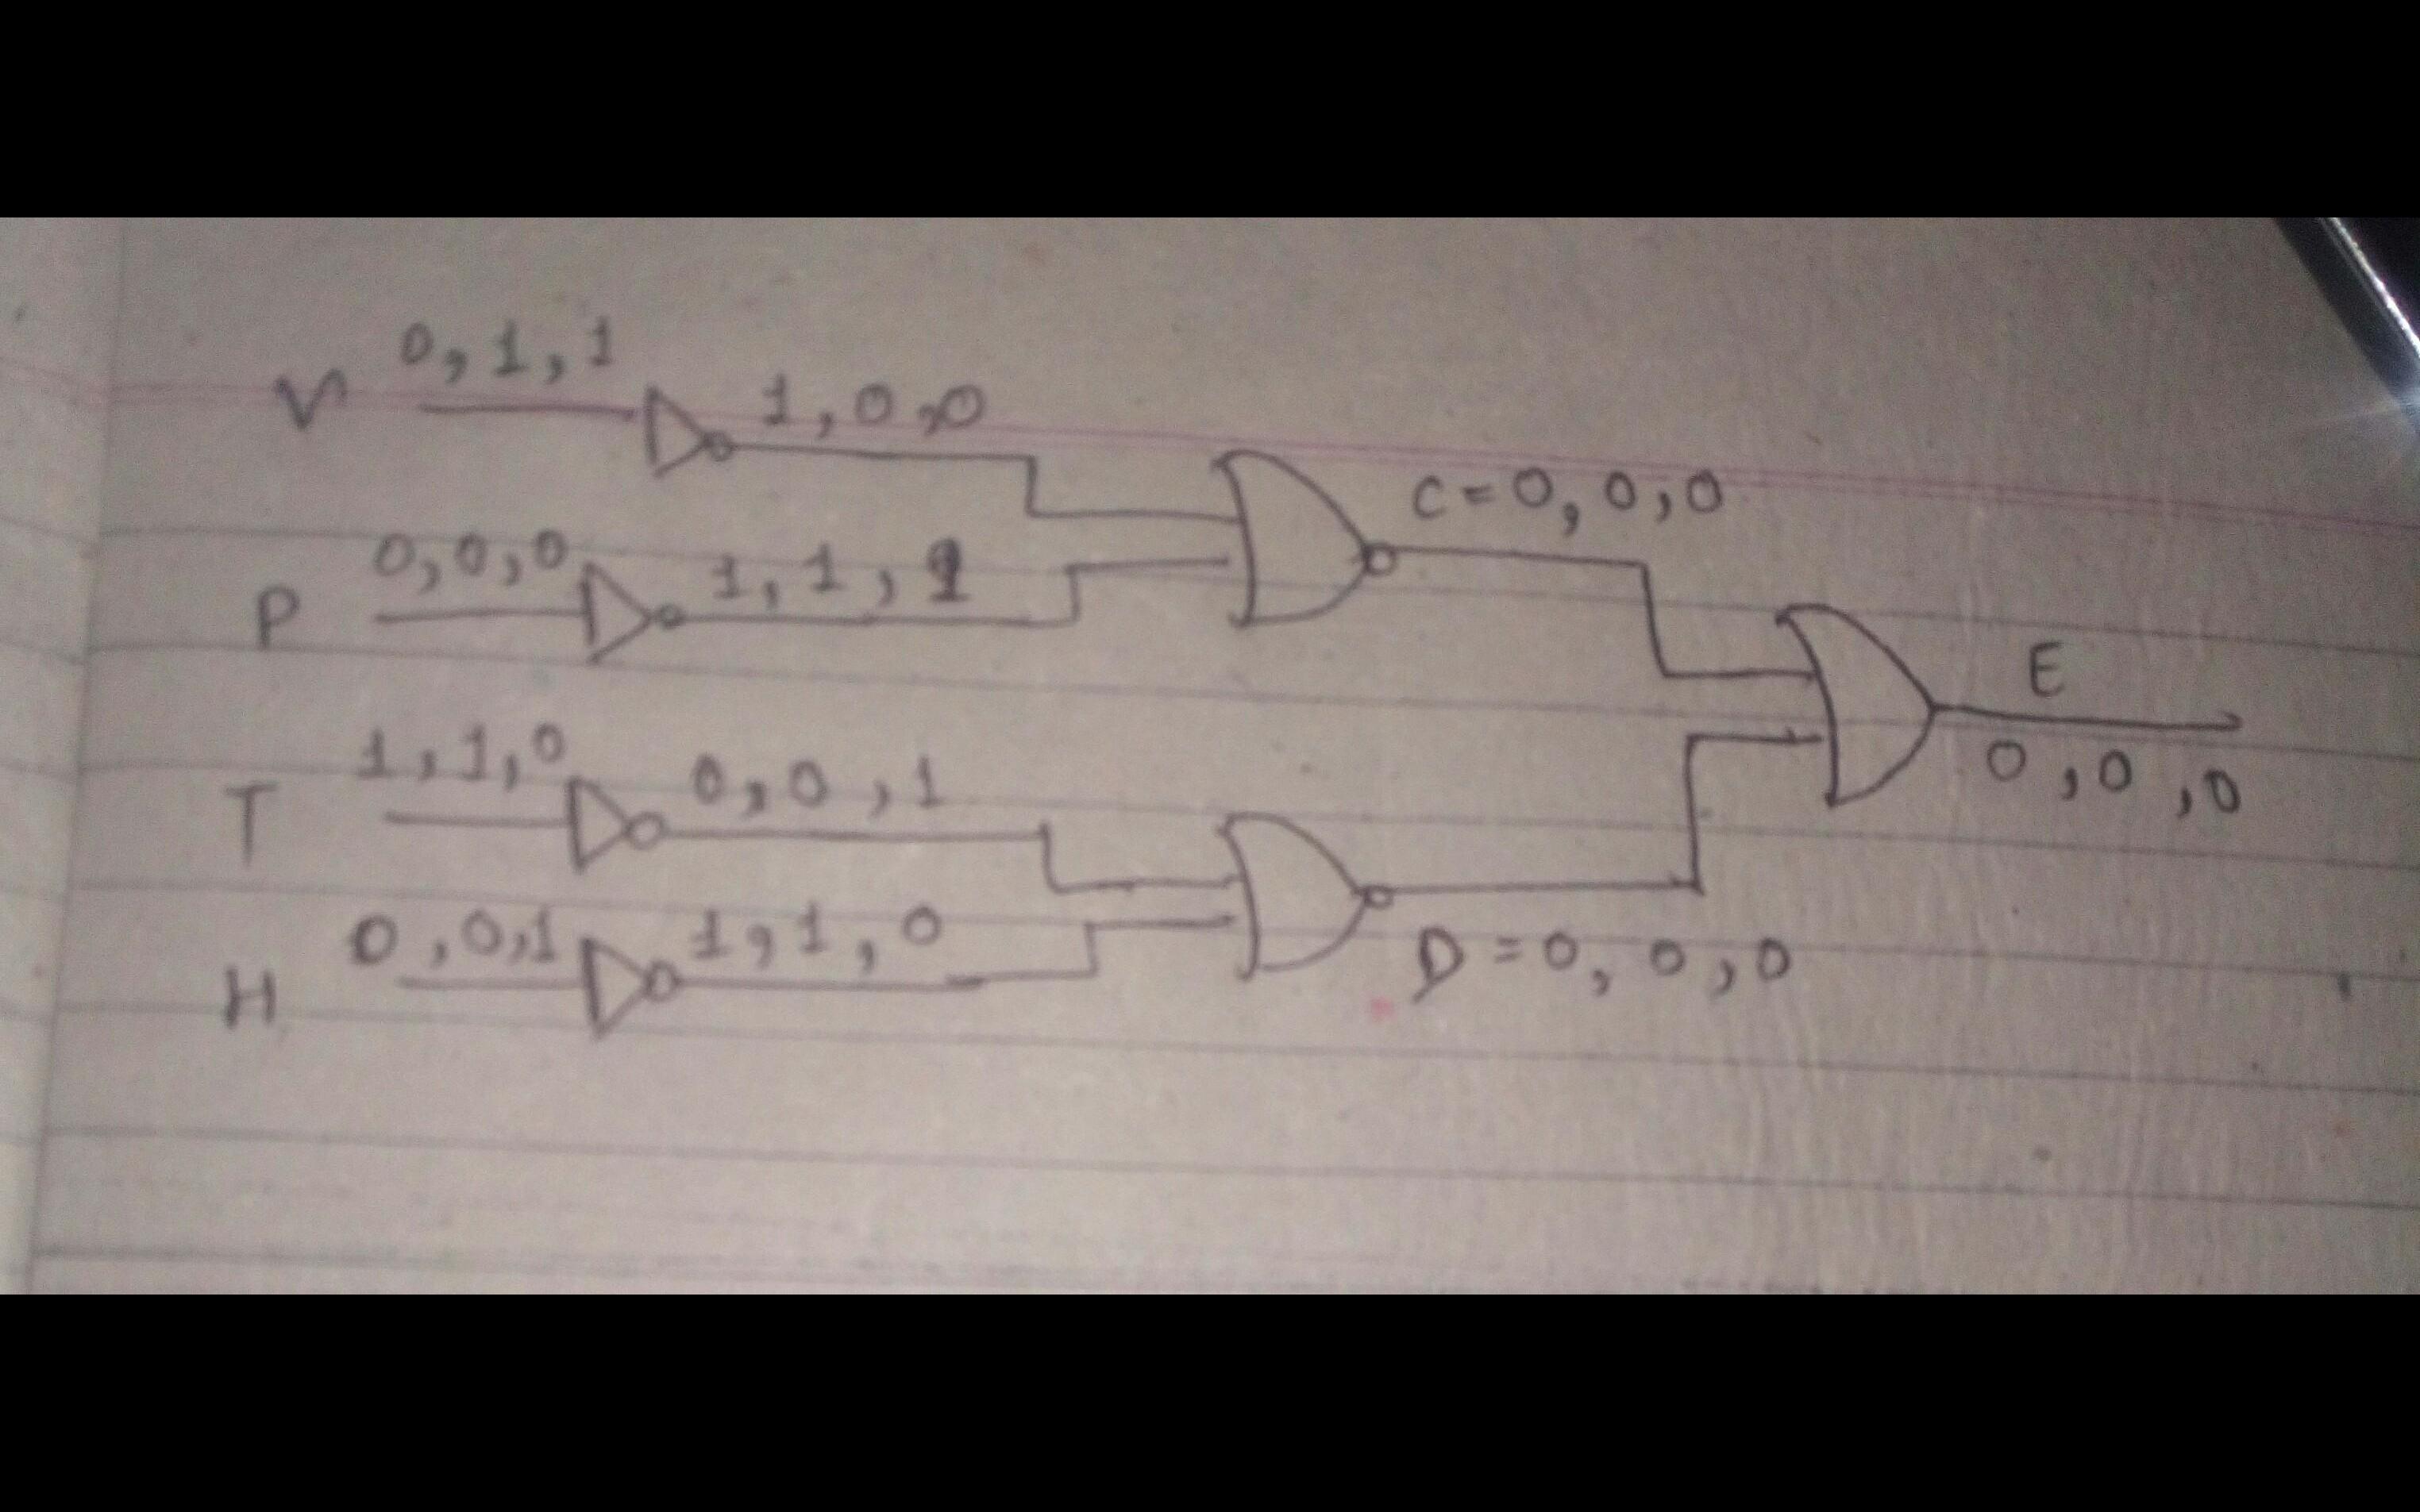 V 0,1,1 1,0,0
C=0,0,0
P 0,0,0 1,1,1
E
0,0,0
T 1,1,0 0,0,1
H 0,0,1 1,1,0
D=0,0,0